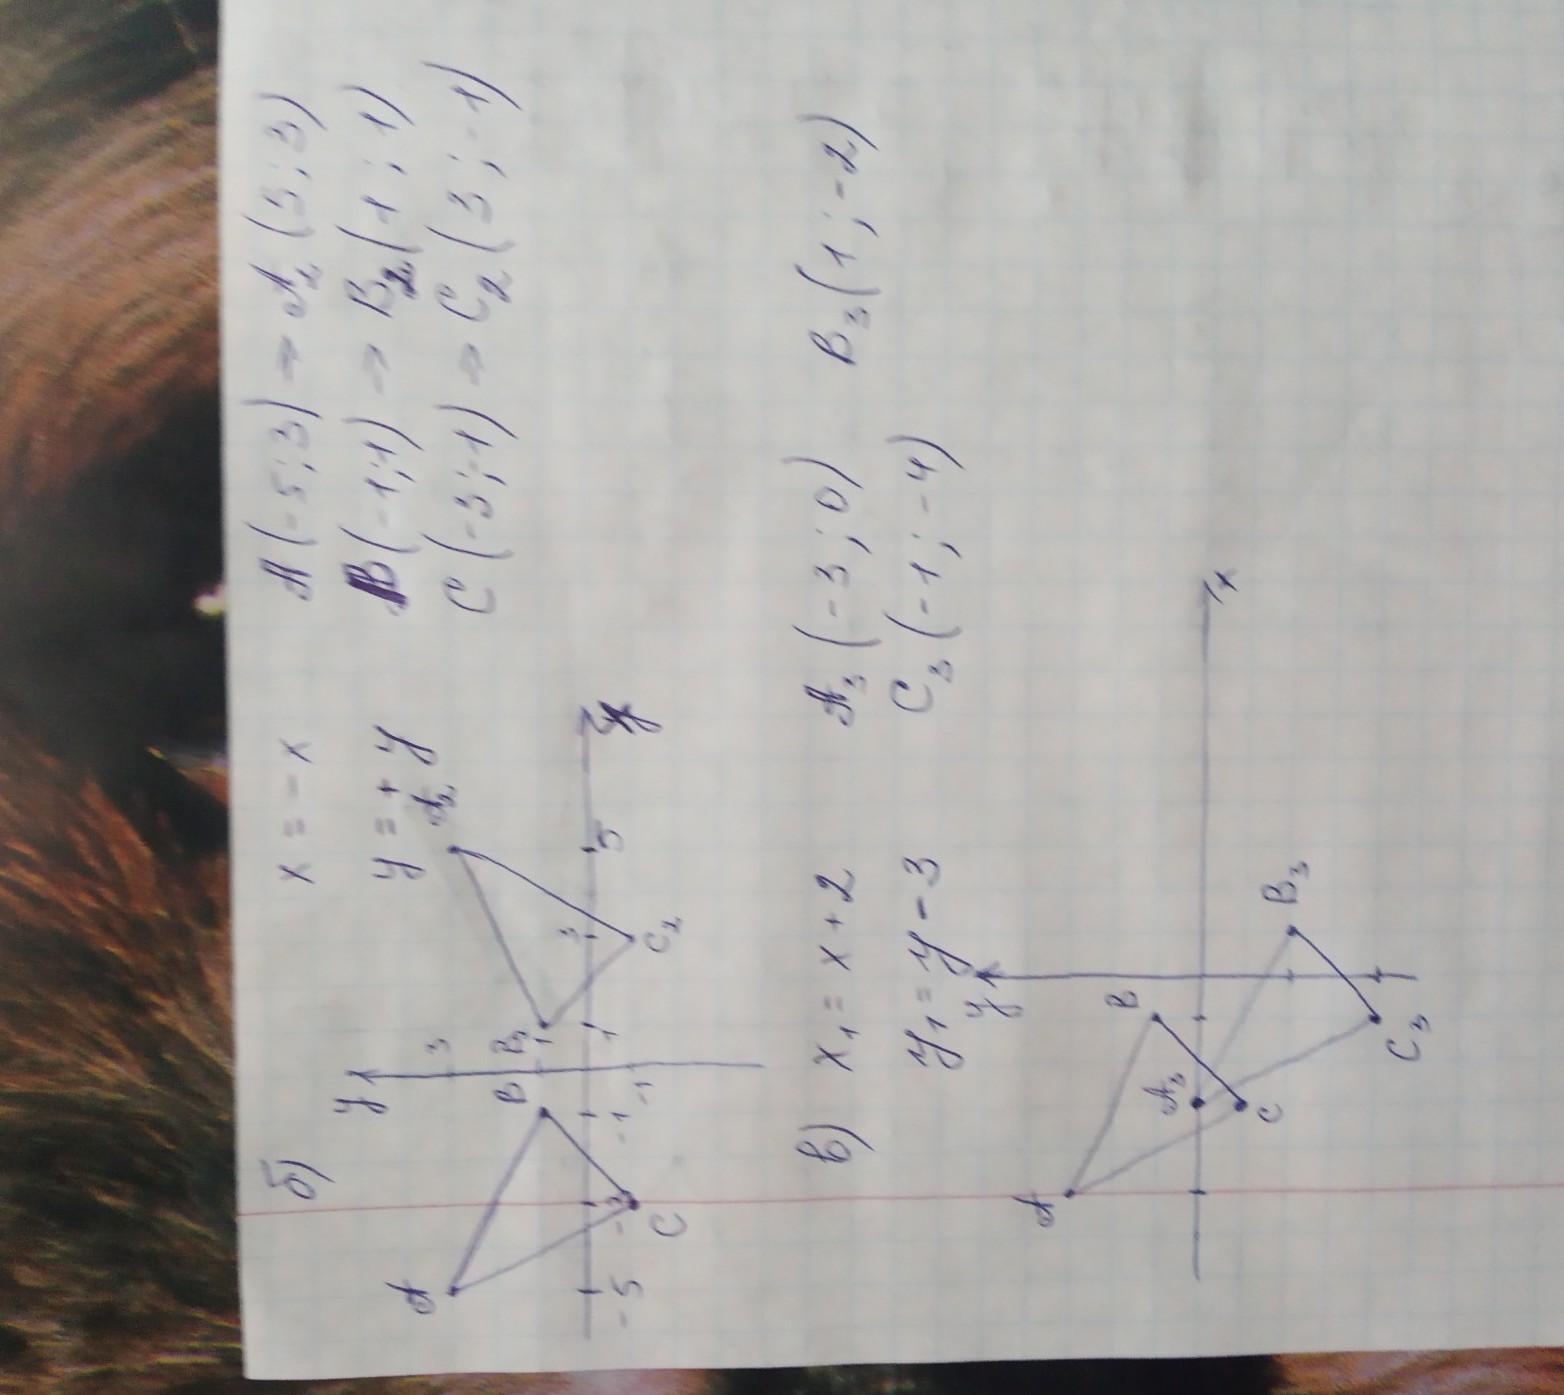 б) x = -x A(-5;3) → A₂(5;3)
y = +y B(-1;1) → B₂(1;1)
C(-3;-1) → C₂(3;-1)
y
A 3 A₂
B B₂
1
3
-5 -3 -1 1 5 x
-1
C C₂
в) x₁ = x + 2 A₃(-3;0) B₃(1;-2)
y₁ = y - 3 C₃(-1;-4)
y
A B
A₃ x
C
B₃
C₃